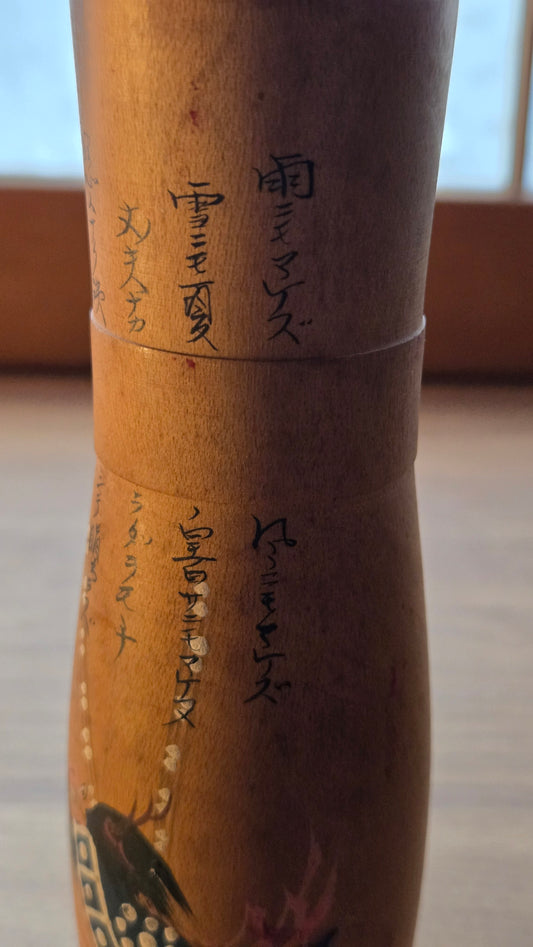 雨ニモマケズ
風ニモマケズ
雪ニモ夏
ノ暑サニモマケヌ
丈夫ナカ
ラダヲモチ